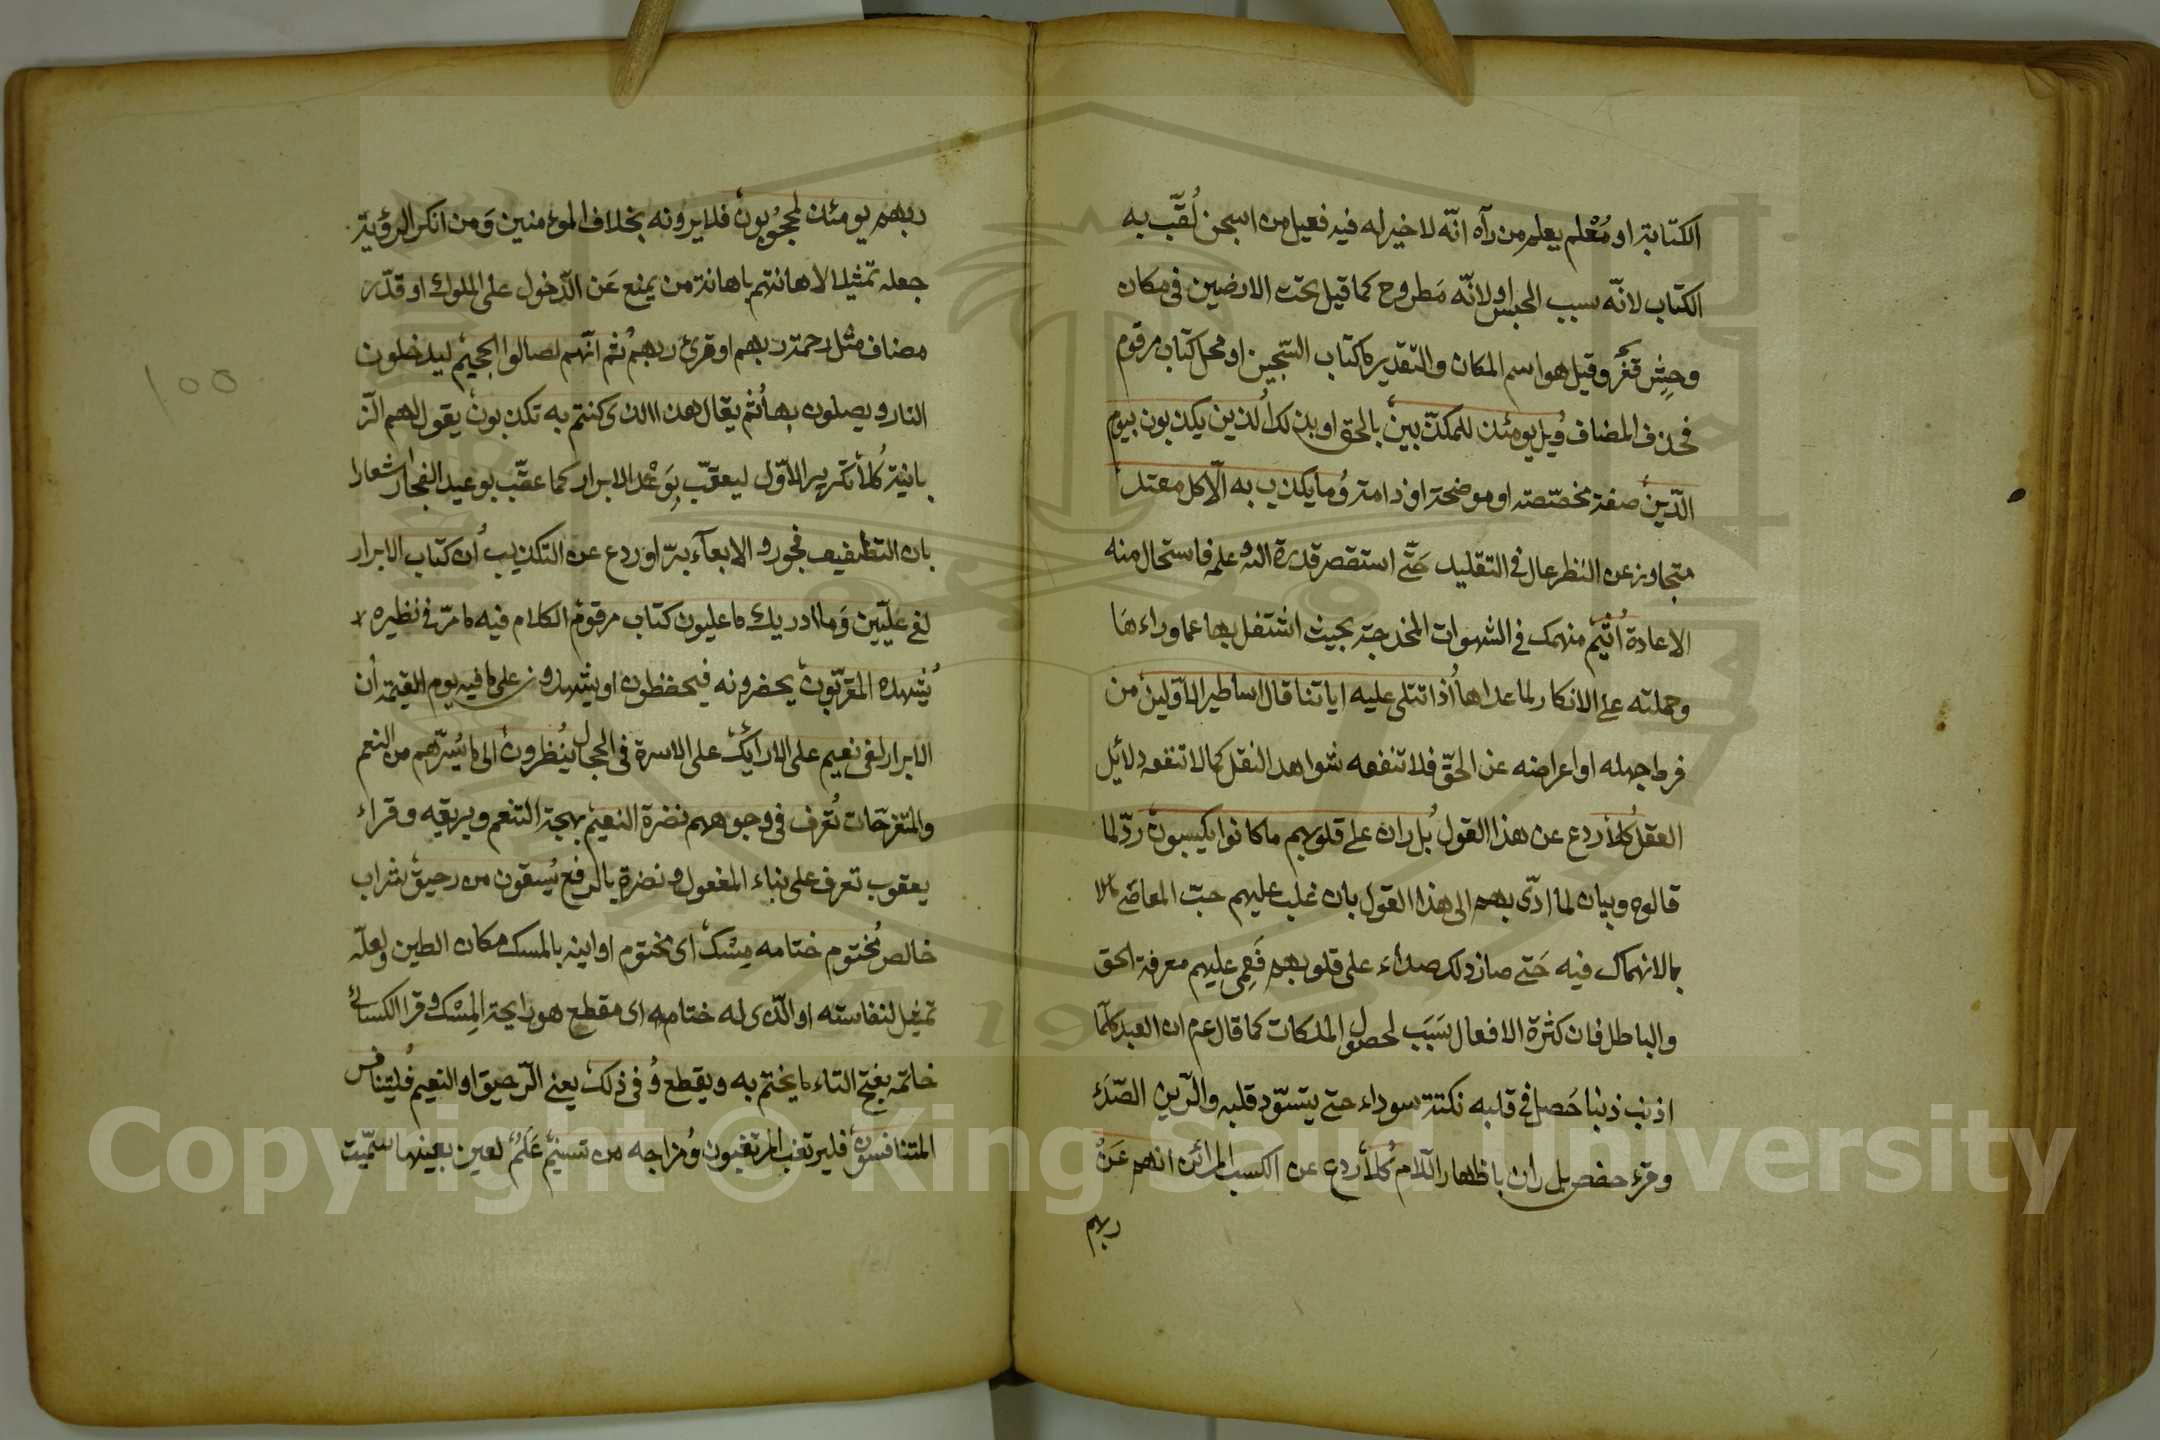 الكتابة او مُعْلم يعلم من رآه انّه لا خير له فيه فعيل من السجن لُقّب به
الكتاب لانّه سبب الحبس او لانّه مَطروح كما قيل تحت الارضين فى مكان
وحِش قفر وقيل هو اسم المكان والتقدير ما كتاب السّجين او محل كتاب مرقوم
فحذف المضاف ويل يومئذ للمكذّبين بالحق او بذلك الذين يكذبون بيوم
الدّين صفة مخصّصة او موضحة او ذامة وما يكذب به الّا كل معتد
متجاوز عن النظر غال فى التقليد حَتَّى استقصر قدرة الله وعلمه فاستحال منه
الاعادة اثيم منهمك فى الشهوات المخدجة بحيث اشتغل بها عما وراءهَا
وحملته على الانكار لما عداها اذا تتلى عليه اياتنا قال اساطير الاوّلين من
فرط جهله او اعراضه عن الحقّ فلا تنفعه شواهد النقل كما لا تنفعه دلايل
العقل كلا ردع عن هذا القول بل ران على قلوبهم ما كانوا يكسبون ردّ لما
قالوه وبيان لما ادّى بهم الى هذا القول بان غلب عليهم حبّ المعاصى
بالانهماك فيه حَتّى صار ذلك صداء على قلوبهم فَعمى عليهم معرفة الحق
والباطل فان كثرة الافعال سَبَب لحصول الملكات كما قال عم ان العبد كلّما
اذنب ذنبا حَصل فى قلبه نكتة سوداء حتى يتسوّد قلبه والرّين الصّدَء
وقرء حفص بل ران باظهار اللّام كلا ردع عن الكسب الرائن انهم عَنْ
ربهم
ربهم يومئذ لمحجُوبون فلا يرونه بخلاف المؤمنين وَمن انكر الرؤية
جعله تمثيلا لاهانتهم باهانة من يمنع عَن الدّخول على الملوك او قدّر
مضاف مثل رحمة ربهم او قرئ ربهم ثم انّهم لصالوا الجحيم ليدخلون
النار ويصلون بها ثم يقال هذا الذى كنتم به تكذبون يقول لهم الزّ
بانية كلا تكرير الاوّل ليعقّب بِوَعْد الابرار كما عقّب بوعيد الفجار اشعارا
بان التطفيف فجور والايفآء برّ او ردع عن التكذيب ان كتاب الابرار
لفى علّيّين وَما ادريك ما عليون كتاب مرقوم الكلام فيه ما مرّ فى نظيره
يشهده المقرّبون يحضرونه فيحفظون او يشهدون على ما فيه يوم القيمة ان
الابرار لفى نعيم على الارايك على الاسرة فى الحجال ينظرون الى ما يُسرّهم من النعم
والمتفرّجات تُعرف فى وجوههم نضرة النعيم بهجة التنعم وبريقه وقراء
يعقوب تعرف على بناء المفعول ونضرة بالرفع يُسقون من رحيق شراب
خالص مُختوم ختامه مِسْك اى مختوم اوانيه بالمسك مكان الطين ولعلّه
تمثيل لنفاسته او الّذى له ختام اى مقطع هو رايحة المِسْك وقرا الكسائى
خاتمه بفتح التاء ما يختم به ويقطع وفى ذلك يعنى الرّحيق او النعيم فليتنافس
المتنافسون فليرتغب المرتغبون ومزاجه من تسنيم عَلَم لعين بعينها سمّيت
١٥٥
Copyright © King Saud University